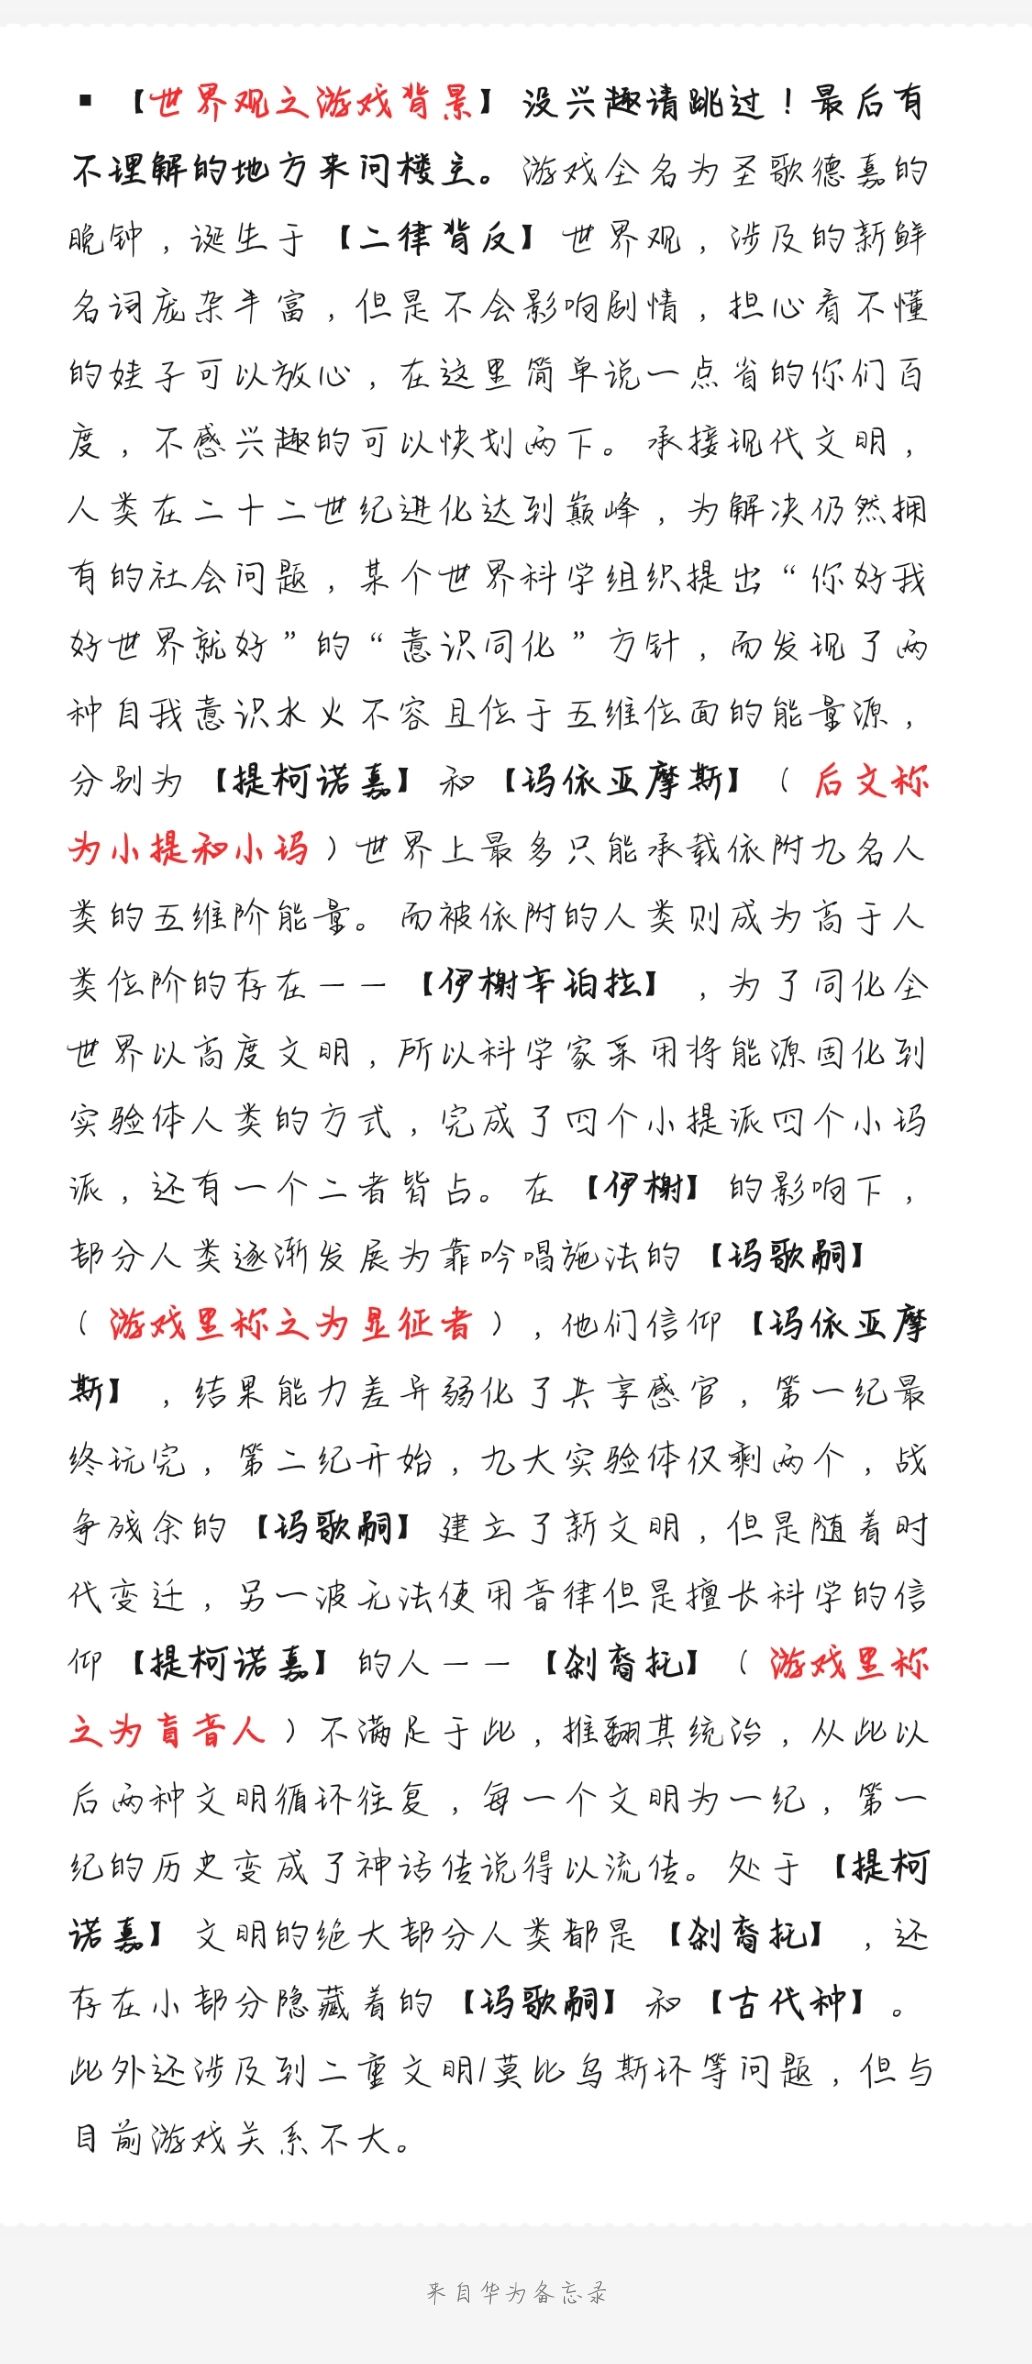 ▪ 【世界观之游戏背景】没兴趣请跳过！最后有
不理解的地方来问楼主。游戏全名为圣歌德嘉的
晚钟，诞生于【二律背反】世界观，涉及的新鲜
名词庞杂丰富，但是不会影响剧情，担心看不懂
的娃子可以放心，在这里简单说一点省的你们百
度，不感兴趣的可以快划两下。承接现代文明，
人类在二十二世纪进化达到巅峰，为解决仍然拥
有的社会问题，某个世界科学组织提出“你好我
好世界就好”的“意识同化”方针，而发现了两
种自我意识水火不容且位于五维位面的能量源，
分别为【提柯诺嘉】和【玛依亚摩斯】（后文称
为小提和小玛）世界上最多只能承载依附九名人
类的五维阶能量。而被依附的人类则成为高于人
类位阶的存在——【伊榭辛珀拉】，为了同化全
世界以高度文明，所以科学家采用将能源固化到
实验体人类的方式，完成了四个小提派四个小玛
派，还有一个二者皆占。在【伊榭】的影响下，
部分人类逐渐发展为靠吟唱施法的【玛歌嗣】
（游戏里称之为显征者），他们信仰【玛依亚摩
斯】，结果能力差异弱化了共享感官，第一纪最
终玩完，第二纪开始，九大实验体仅剩两个，战
争残余的【玛歌嗣】建立了新文明，但是随着时
代变迁，另一波无法使用音律但是擅长科学的信
仰【提柯诺嘉】的人——【刹裔托】（游戏里称
之为盲音人）不满足于此，推翻其统治，从此以
后两种文明循环往复，每一个文明为一纪，第一
纪的历史变成了神话传说得以流传。处于【提柯
诺嘉】文明的绝大部分人类都是【刹裔托】，还
存在小部分隐藏着的【玛歌嗣】和【古代种】。
此外还涉及到二重文明/莫比乌斯环等问题，但与
目前游戏关系不大。
来自华为备忘录